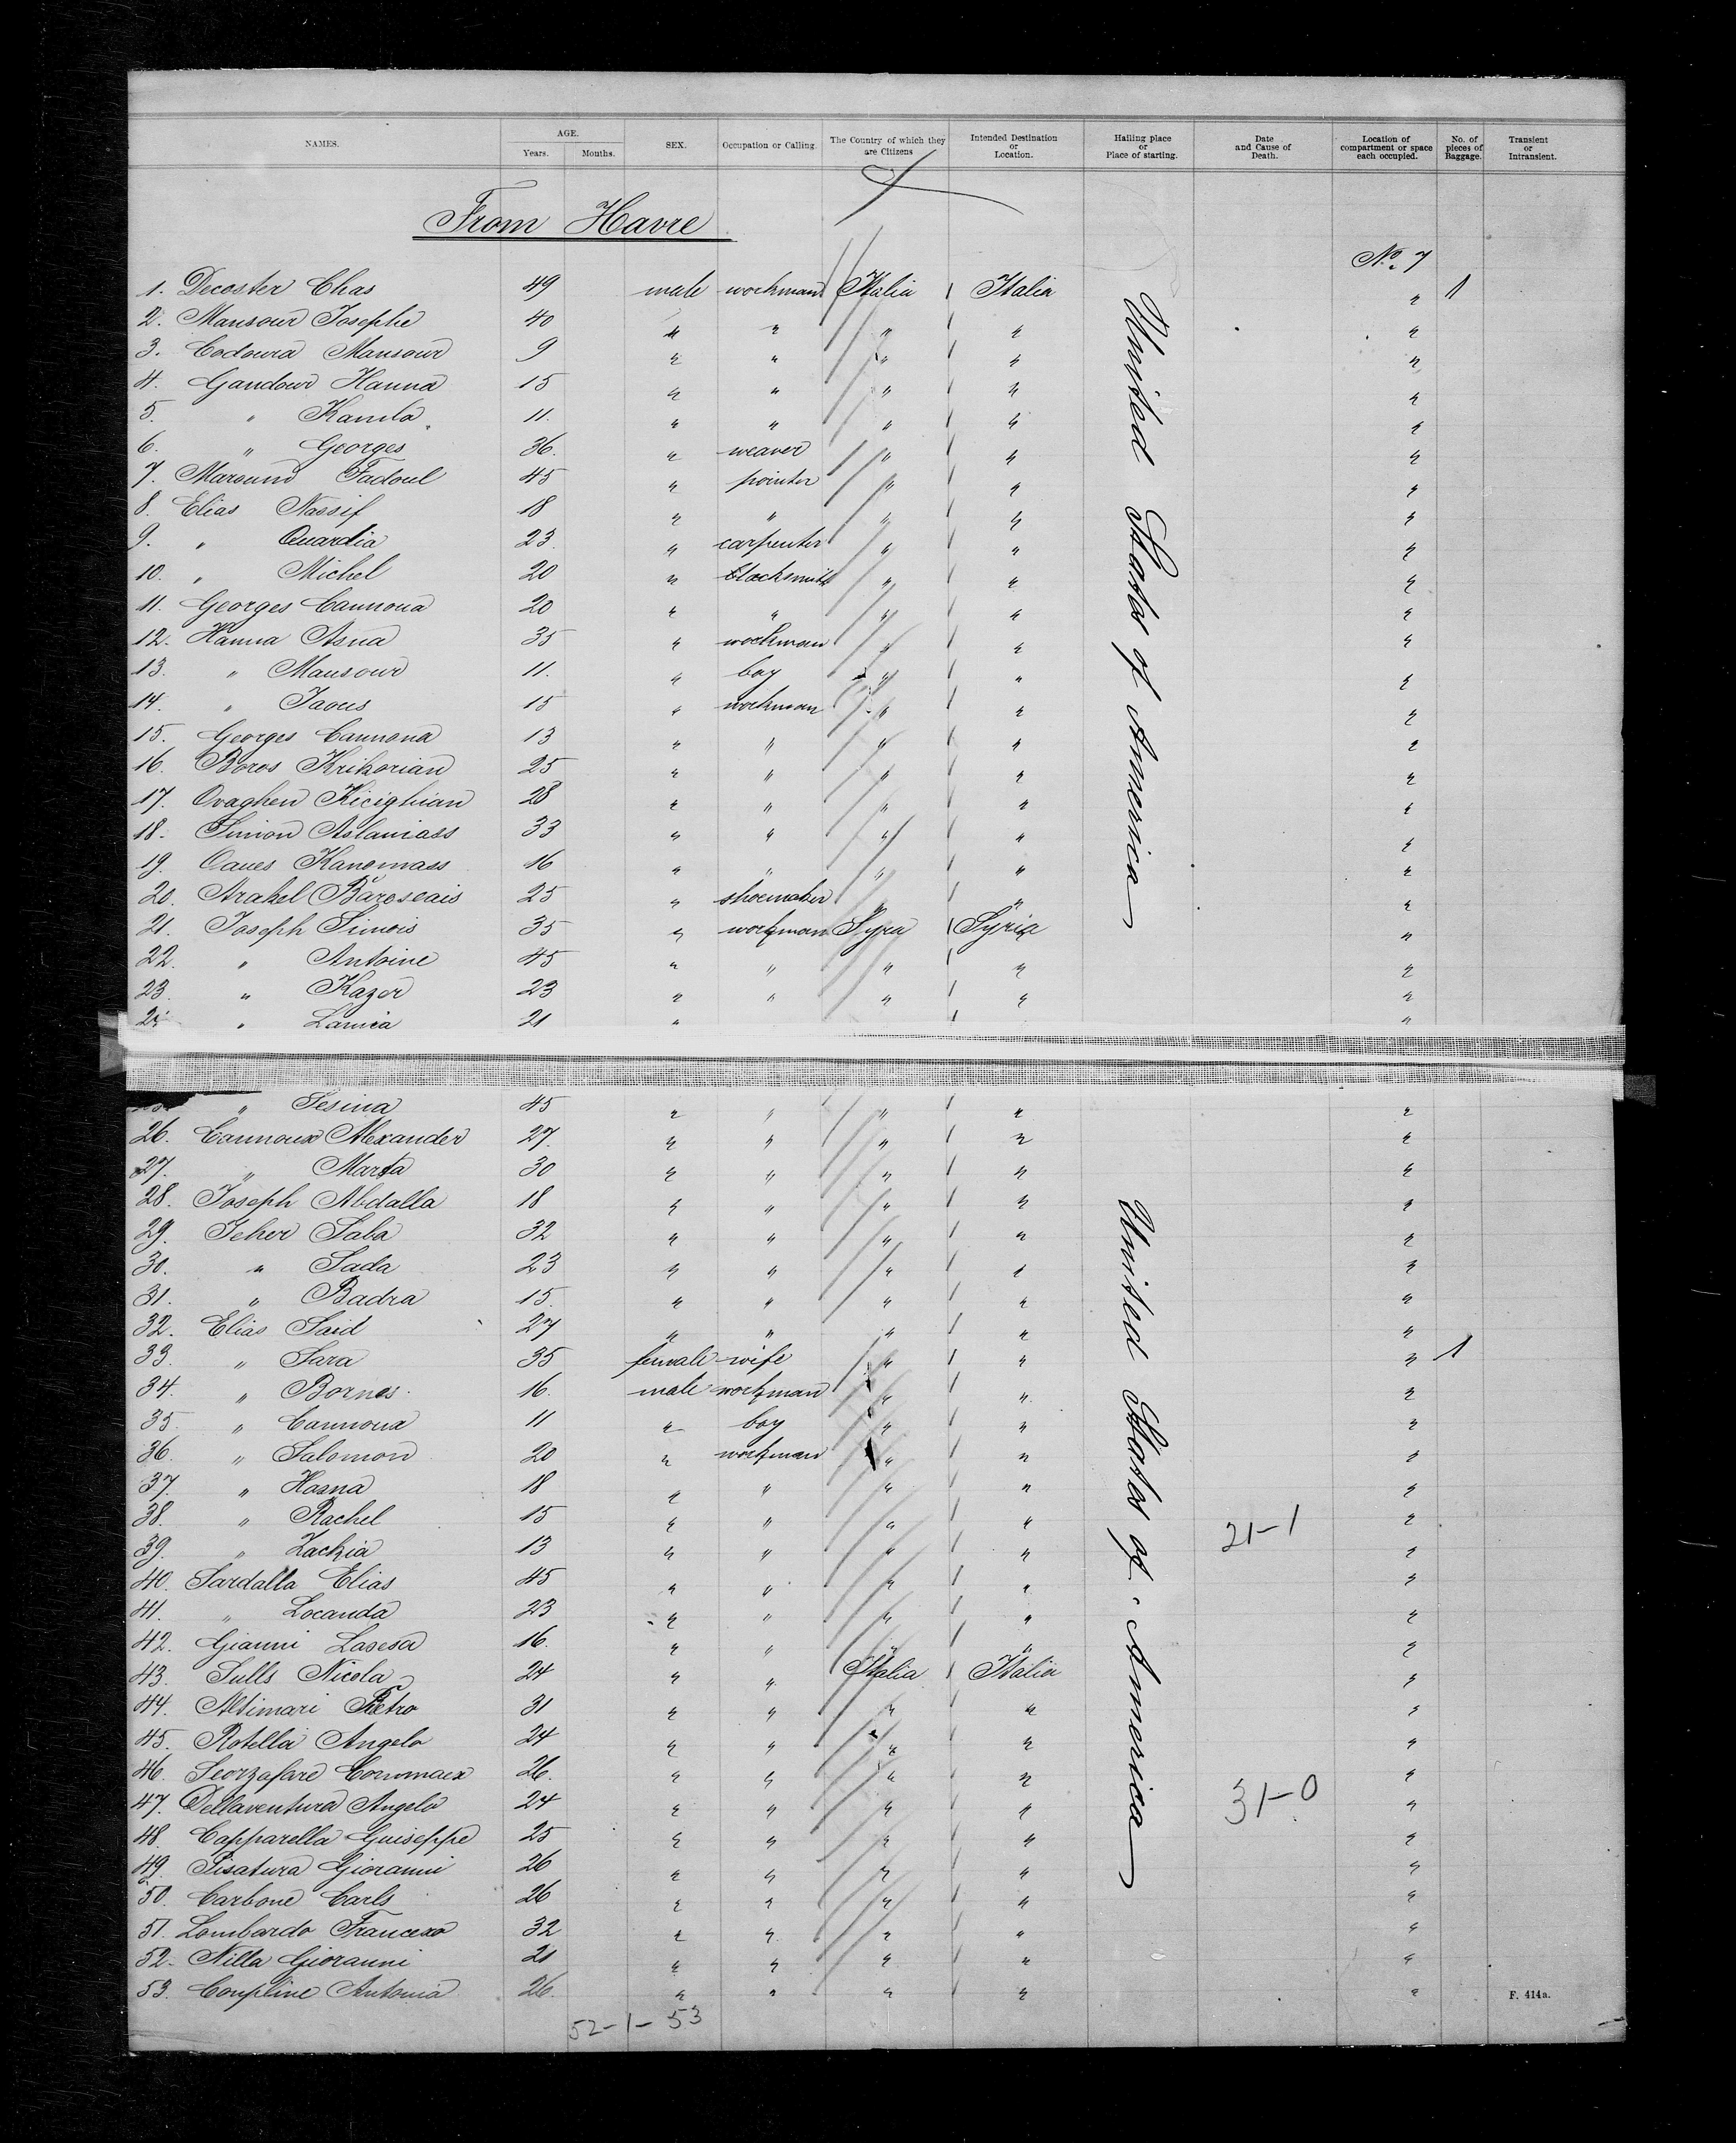 NAMES. AGE. Years. Months. SEX. Occupation or Calling. The Country of which they are Citizens Intended Destination or Location. Hailing place or Place of starting. Date and Cause of Death. Location of compartment or space each occupied. No. of pieces of Baggage. Transient or Intransient.
From Havre
No. 7
1. Decoster Elias 49 male workman Italia Italia " 1
2. Mansour Josephe 40 " " " " "
3. Codoura Mansour 9 " " " " "
4. Gandour Hanna 15 " " " " "
5. " Kamila 11. " " " " "
6. " Georges 36. " weaver " " "
7. Maround Fadoul 45 " pointer " " "
8. Elias Nassif 18 " " " " "
9. " Quardia 23 " carpenter " " "
10. " Michel 20 " blacksmith " " "
11. Georges Cannoua 20 " " " " "
12. Hanna Asna 35 " workman " " "
13. " Mansour 11. " boy " " "
14. " Taous 15 " workman " " "
15. Georges Cannona 13 " " " " "
16. Boros Krikorian 25 " " " " "
17. Ovaghen Kicighian 28 " " " " "
18. Simon Aslaniass 33 " " " " "
19. Oanes Kanemass 16 " " " " "
20. Arakel Baroseais 25 " shoemaker " " "
21. Joseph Simois 35 " workman Syra Syria "
22. " Antoine 45 " " " " "
23. " Kazer 23 " " " " "
" Lamia 21 " "
" Sesina 45 " " " " "
26. Cannoux Alexander 27. " " " " "
27. " Marta 30 " " " " "
28. Joseph Abdalla 18 " " " " "
29. Jeher Saba 32 " " " " "
30. " Sada 23 " " " " "
31. " Badra 15. " " " " "
32. Elias Said 27 " " " " "
33. " Sara 35 female wife " " " 1
34. " Bornes. 16. male workman " " "
35 " Cannoua 11 " boy " " "
36. " Salomon 20 " workman " " "
37. " Hasna 18 " " " " "
38. " Rachel 15 " " " " "
39. " Zackia 13 " " " " "
40. Sardalla Elias 45 " " " " "
41. " Locanda 23 " " " " "
42. Gianni Lasesa 16. " " " " "
43. Sulls Nicola 24 " " Italia Italia "
44. Altimari Pietro 31 " " " " "
45. Rotella Angelo 24 " " " " "
46. Scorzafare 26. " " " " "
47. Dellaventura Angelo 24 " " " " "
48. Capparella Guiseppe 25 " " " " "
49. Pisatura Gioranni 26 " " " " "
50. Carbone Carls 26 " " " " "
51. Lombardo Francesco 32 " " " " "
52. Nilla Gioranni 21 " " " " "
53. Coupline Antonia 26. " " " " "
United States of America
United States of America
21-1
31-0
52-1-53
F. 414a.